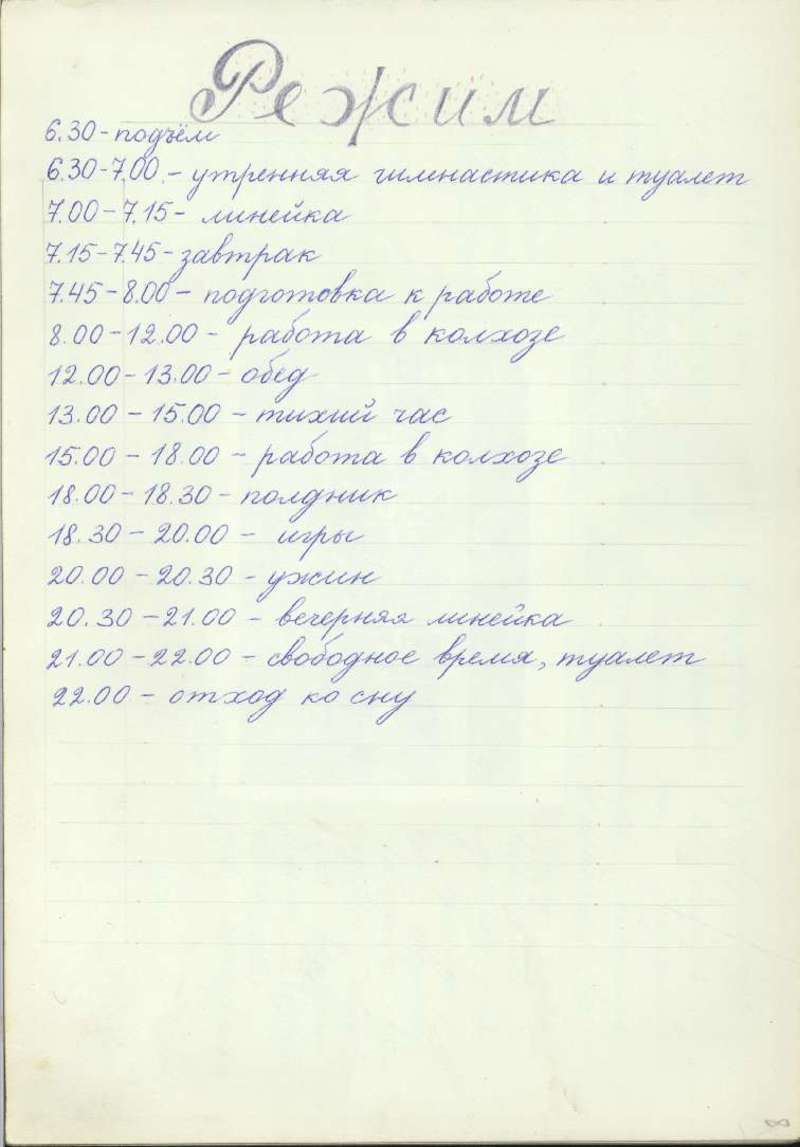 Режим
6.30 - подъём
6.30-7.00. - утренняя гимнастика и туалет
7.00 - 7.15 - линейка
7.15 - 7.45 - завтрак
7.45 - 8.00 - подготовка к работе
8.00 - 12.00 - работа в колхозе
12.00 - 13.00 - обед
13.00 - 15.00 - тихий час
15.00 - 18.00 - работа в колхозе
18.00 - 18.30 - полдник
18.30 - 20.00 - игры
20.00 - 20.30 - ужин
20.30 - 21.00 - вечерняя линейка
21.00 - 22.00 - свободное время, туалет
22.00 - отход ко сну